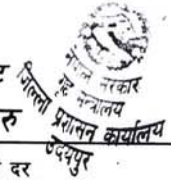 नेपाल सरकार
गृह मन्त्रालय
जिल्ला प्रशासन कार्यालय
उदयपुर
रु
दर